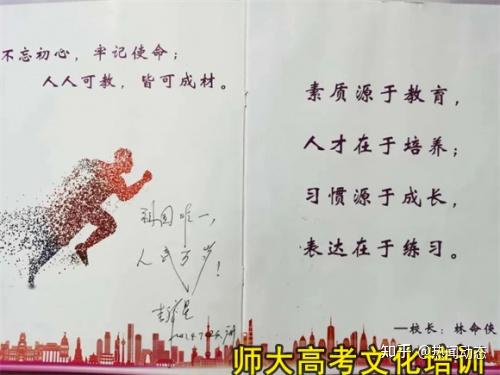 不忘初心，牢记使命；
人人可教，皆可成材。
祖国唯一，
人民万岁！
素质源于教育，
人才在于培养；
习惯源于成长，
表达在于练习。
—校长：林命侠
师大高考文化培训
知乎 @热闻动态